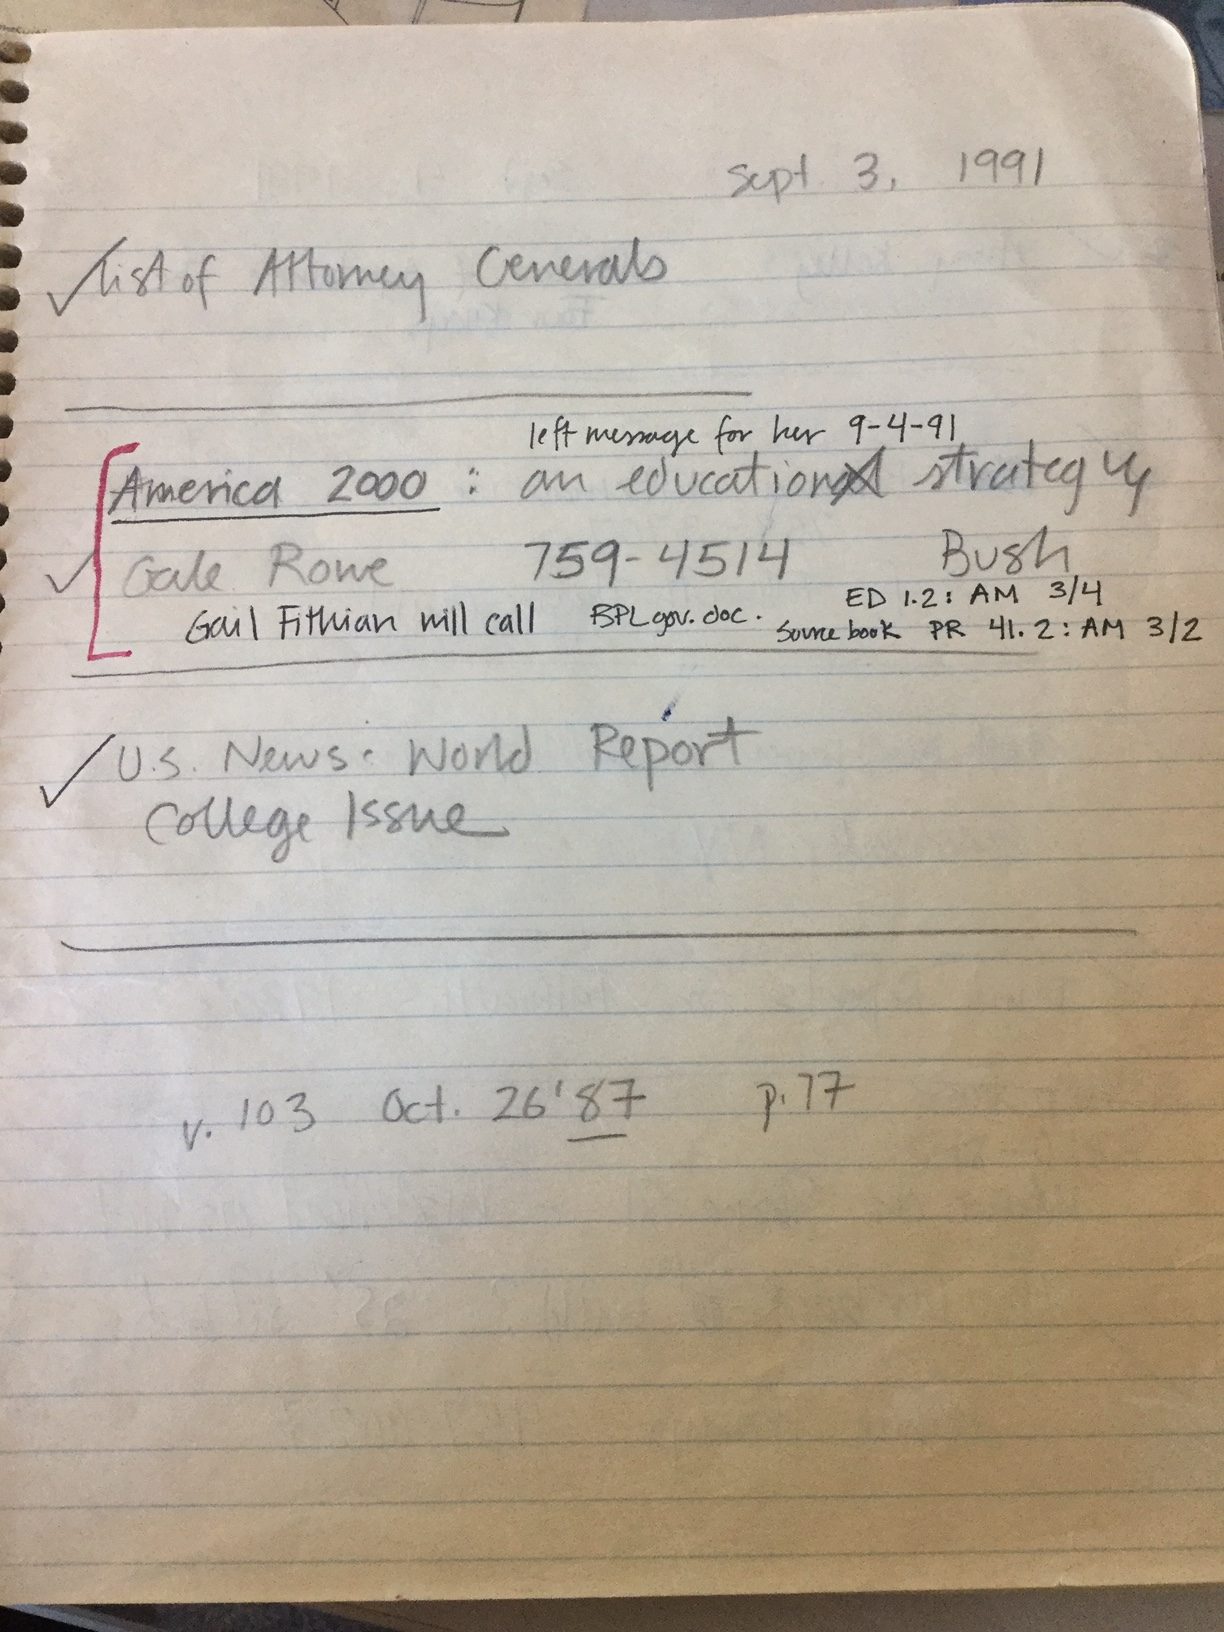 Sept 3, 1991
✓ List of Attorney Generals
left message for her 9-4-91
America 2000 : an education strategy
✓ Gale Rowe 759-4514 Bush
ED 1.2: AM 3/4
Gail Fithian will call BPL gov. doc.
Source book PR 41.2: AM 3/2
✓ U.S. News: World Report
College Issue
v. 103 Oct. 26 '87 p. 77